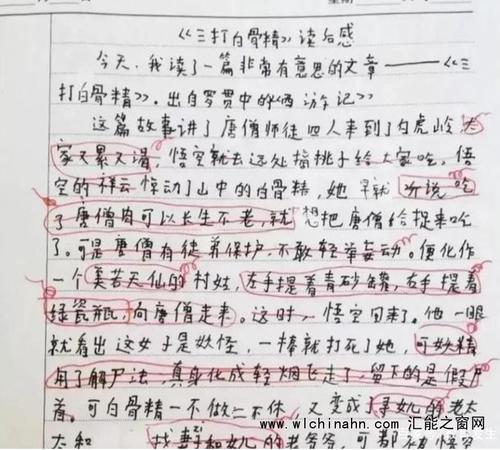 《三打白骨精》读后感
今天,我读了一篇非常有意思的文章——《三
打白骨精》.出自罗贯中的《西游记》
这篇故事讲了唐僧师徒四人来到了白虎岭,大
家又累又渴,悟空就去远处摘桃子给大家吃,悟
空的祥云惊动了山中的白骨精,她早就听说吃
了唐僧肉可以长生不老,就想把唐僧给捉来吃
了。可是唐僧有徒弟保护,不敢轻举妄动。便化作
一个美若天仙的村姑,左手提着青砂罐,右手提着
绿瓷瓶,向唐僧走来。这时,悟空回来了。他一眼
就看出这女子是妖怪,一棒就打死了她,可妖精
用了解尸法,真身化成轻烟飞走了,留下的是假尸
首。可白骨精一不做二不休,又变成了寻女儿的老太
太和 找妻子和女儿的老爷爷,可都被悟空
www.wlchinahn.com 汇能之窗网